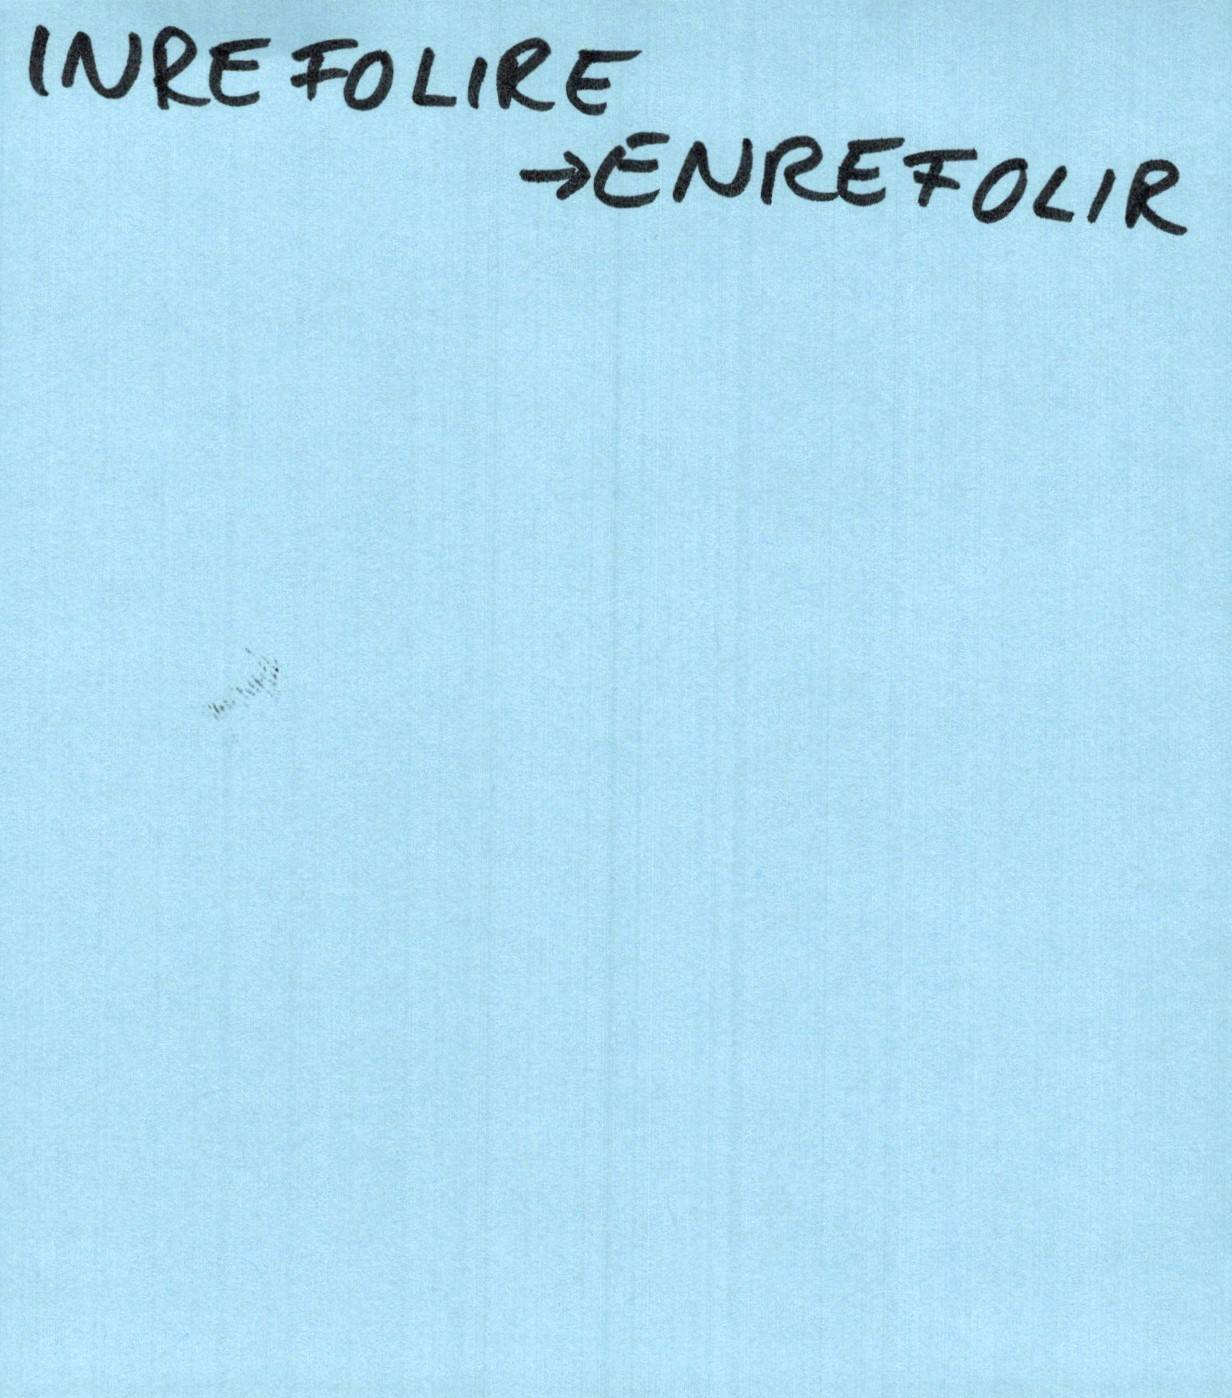 INREFOLIRE
→ENREFOLIR